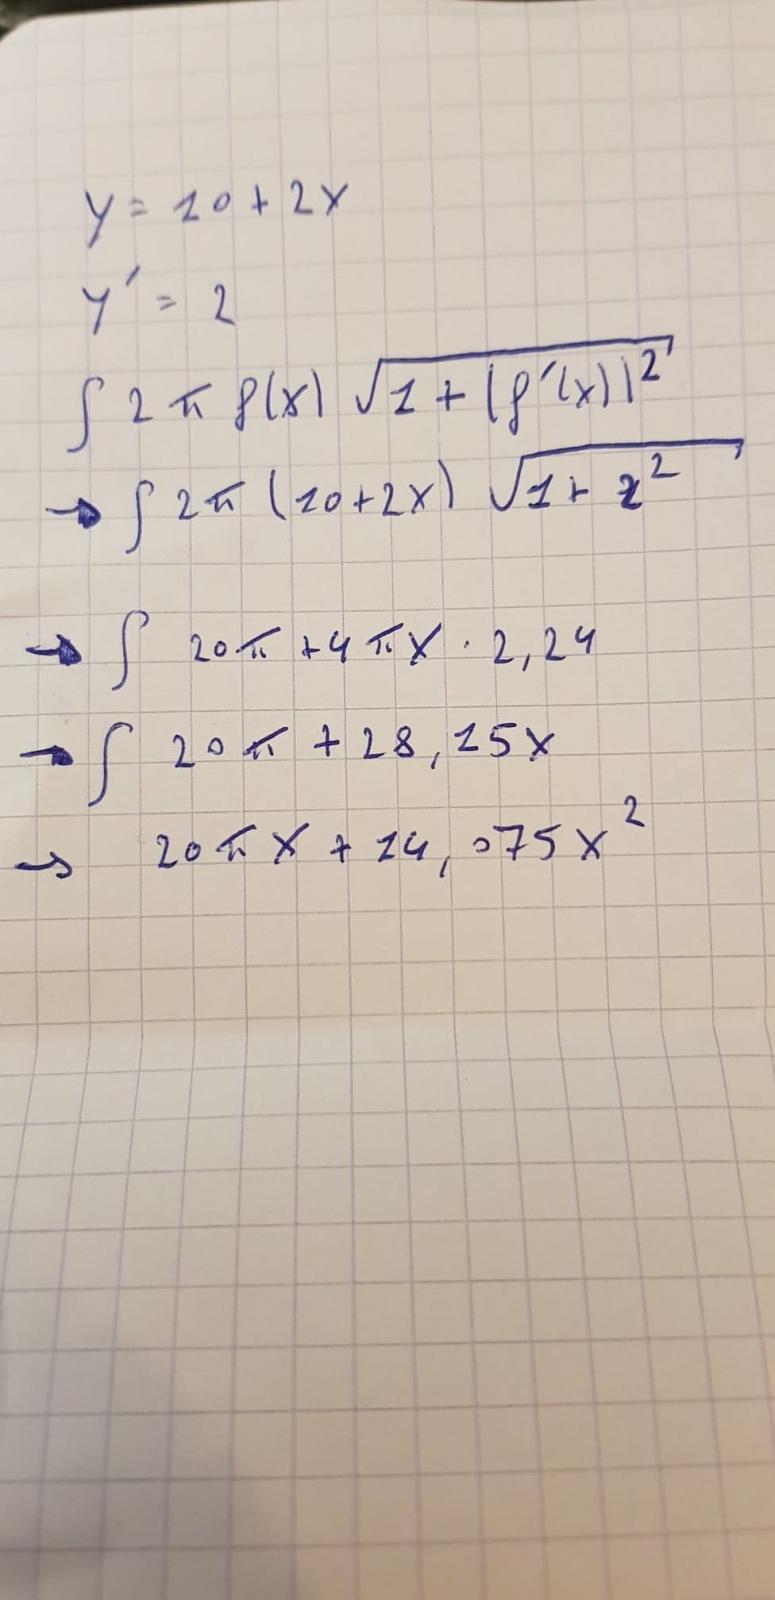 y = 10 + 2x
y' = 2
∫ 2π f(x) √1 + (f'(x))²
→ ∫ 2π (10+2x) √1 + 2²
→ ∫ 20π + 4πx · 2,24
→ ∫ 20π + 28,15x
→ 20πx + 14,075x²